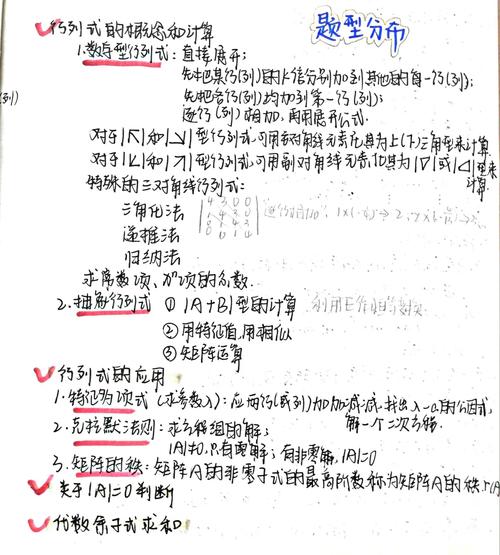 题型分布
行列式的概念和计算
1.数字型行列式:直接展开;
先把某行(列)的k倍分别加到其他的每一行(列);
列)
先把各行(列)均加到第一行(列);
逐行(列)相加,再用展开公式.
对于|↖|和|↘|型行列式,可用主对角线元素化其为上(下)三角型来计算
对于|↙|和|↗|型行列式,可用副对角线元素,化其为|▽|或|◁|型来计算.
特殊的三对角线行列式:
三角化法
递推法
归纳法
求常数项、xⁿ项的系数.
2.抽象行列式 ① |A+B|型的计算
②用特征值,用相似
③矩阵运算
行列式的应用
1.特征多项式(求参数λ):应两行(或列)加加减减,找出λ-a的公因式,
解一个二次方程.
2.克拉默法则:求方程组的解;
|A|≠0,只有零解;有非零解,|A|=0
3.矩阵的秩:矩阵A的非零子式的最高阶数称为矩阵A的秩.r(A
关于|A|=0判断
代数余子式求和